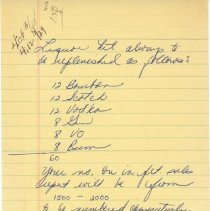 Liquor kit always to
be replenished as follows:
12 Bourbon
12 Scotch
12 Vodka
8 Gin
8 VO
8 Rum
60
Your no. on in flt sales
report will be from
1500 - 2000
to be numbered